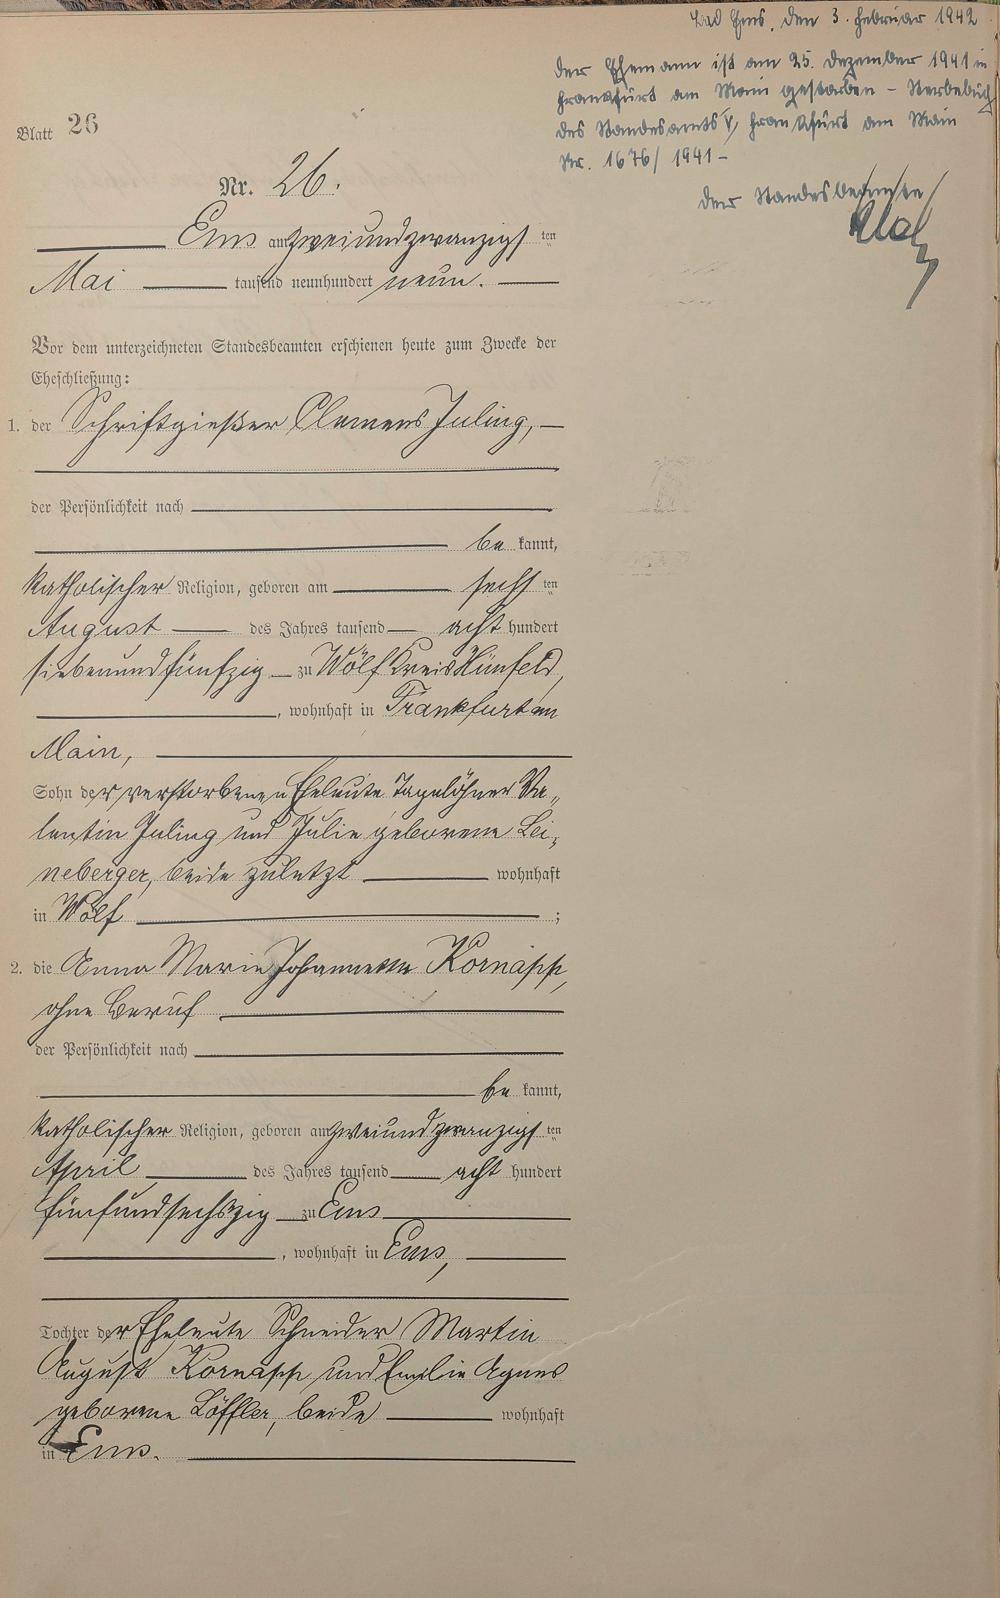 Bad Ems, den 3. Februar 1942
Der Ehemann ist am 25. Dezember 1941 in
Frankfurt am Main gestorben – Sterbebuch
des Standesamts V, Frankfurt am Main
Nr. 1676/1941 –
Der Standesbeamte
Blatt 26
Nr. 26.
Ems am zweiundzwanzigsten
Mai tausend neunhundert neun.
Vor dem unterzeichneten Standesbeamten erschienen heute zum Zwecke der
Eheschließung:
1. der Schriftgießer Clemens Juling,
der Persönlichkeit nach
be kannt,
katholischer Religion, geboren am sechsten
August des Jahres tausend acht hundert
siebenundfünfzig zu Wölf Kreis Hünfeld,
, wohnhaft in Frankfurt am
Main,
Sohn der verstorbenen Eheleute Tagelöhner Va„
lentin Juling und Julie geborene Lei„
neberger, beide zuletzt wohnhaft
in Wölf ;
2. die Anna Maria Johannetta Kornäpp,
ohne Beruf
der Persönlichkeit nach
be kannt,
katholischer Religion, geboren am zweiundzwanzigsten
April des Jahres tausend acht hundert
fünfundsechszig zu Ems
, wohnhaft in Ems,
Tochter der Eheleute Schneider Martin
August Kornäpp und Emilie Agnes
geborene Löffler, beide wohnhaft
in Ems.